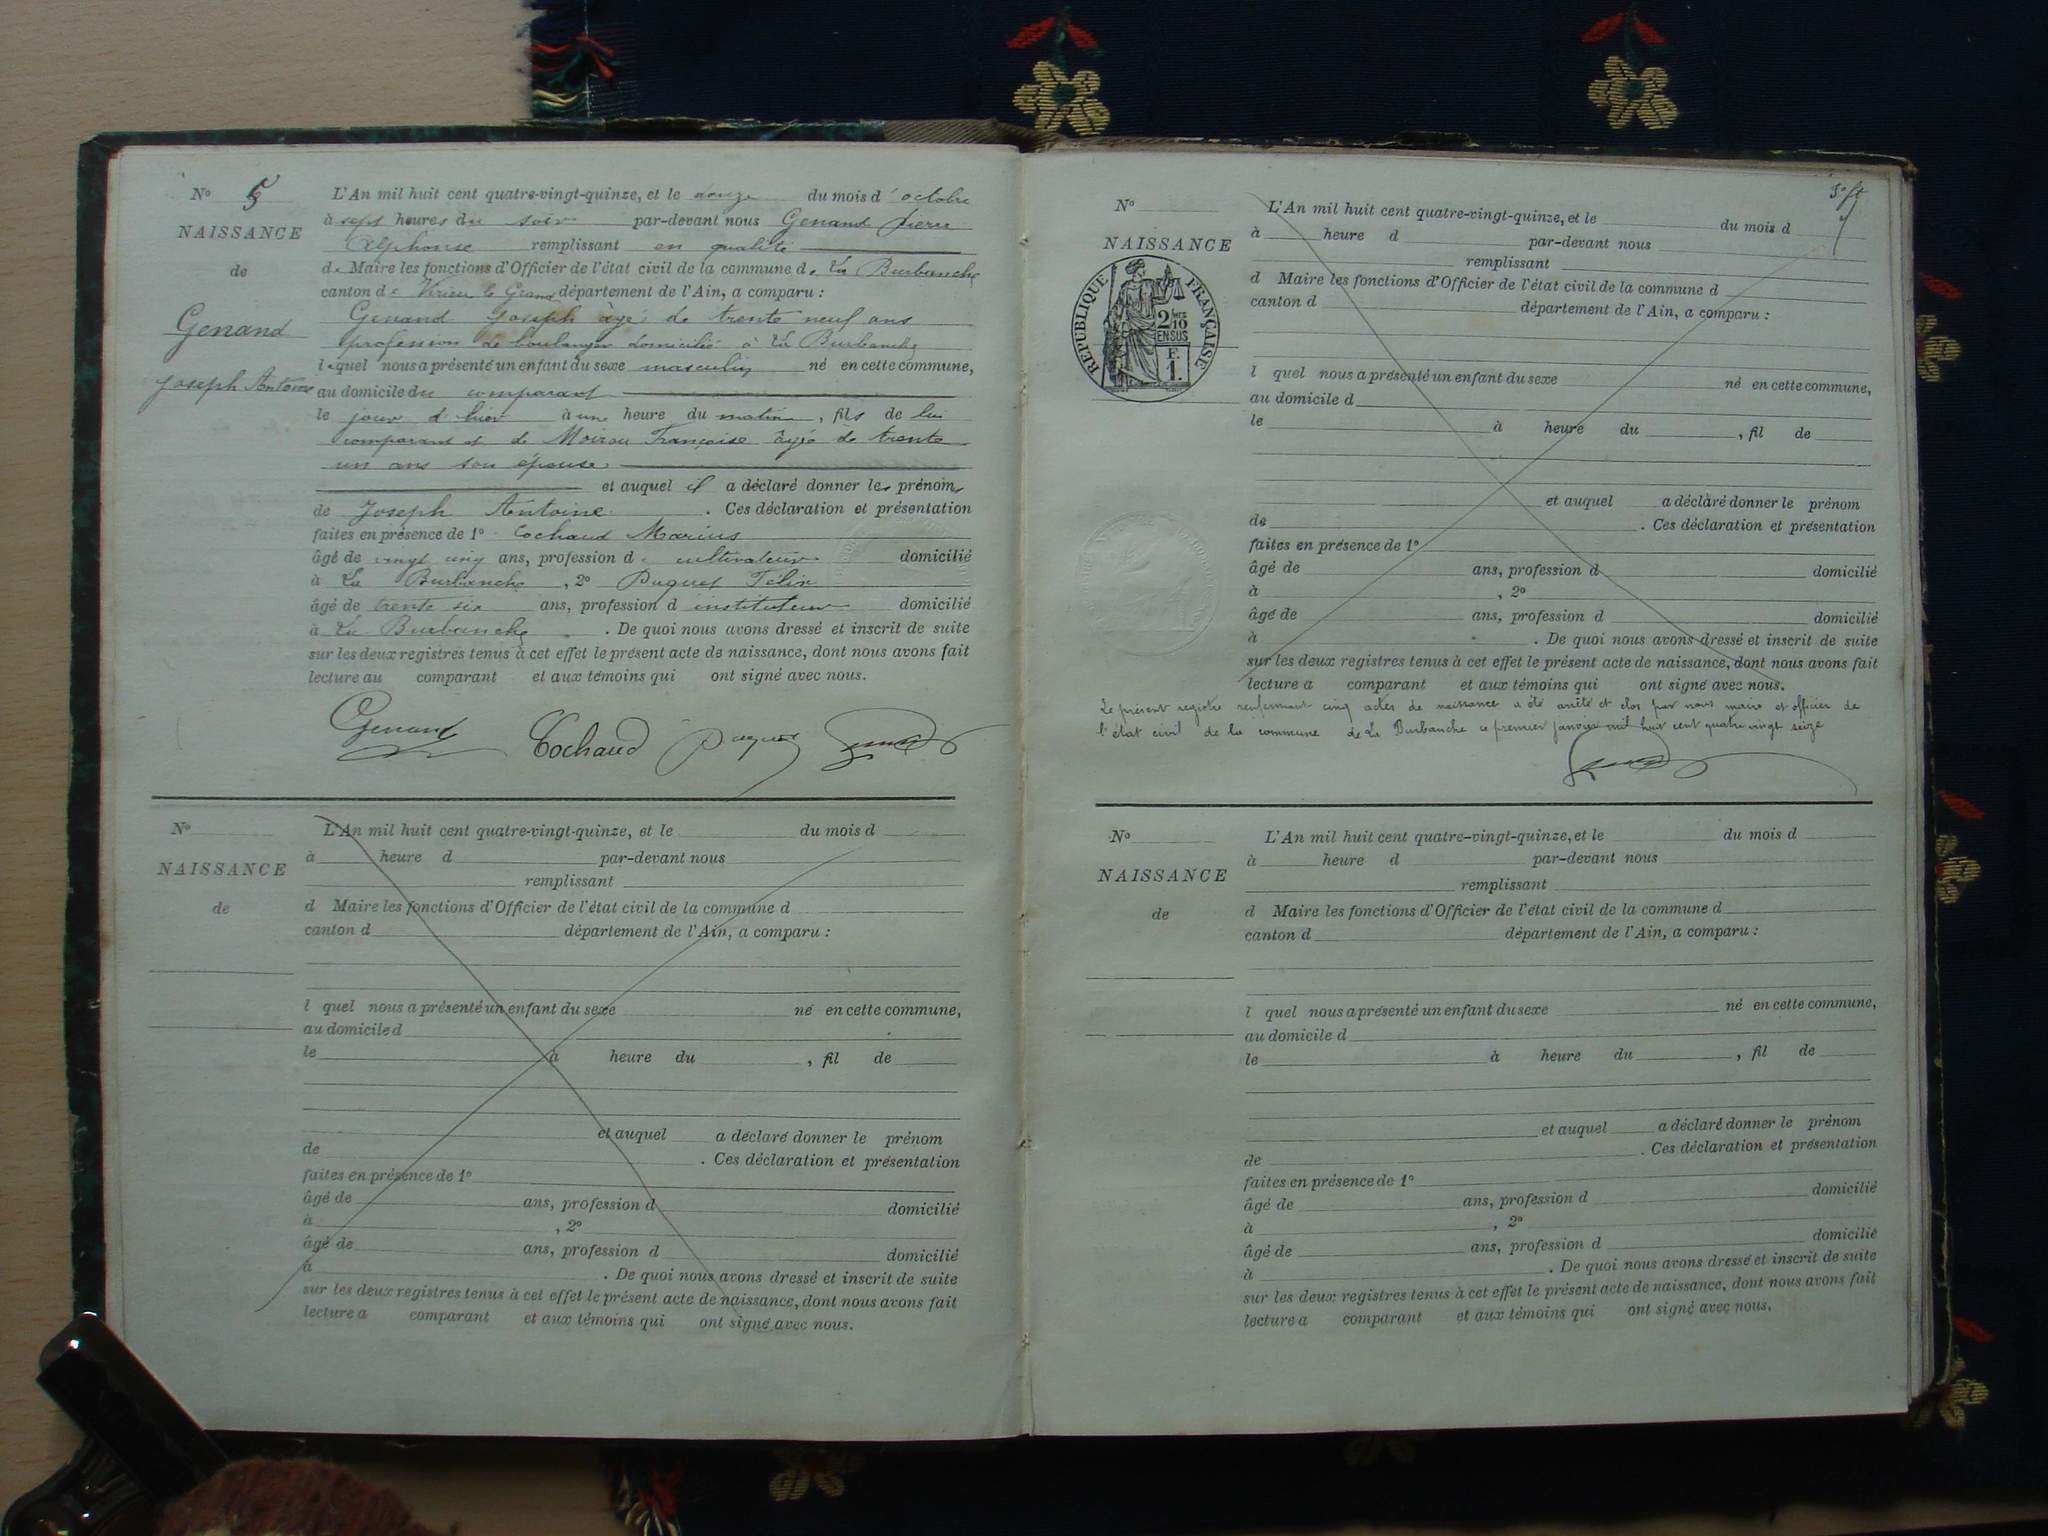 N° 5
NAISSANCE
de
Genand
Joseph Antoine
L'An mil huit cent quatre-vingt-quinze, et le douze du mois d'octobre
à sept heures du soir par-devant nous Genand Pierre
Alphonse remplissant en qualité
de Maire les fonctions d'Officier de l'état civil de la commune de La Burbanche
canton de Virieu le Grand département de l'Ain, a comparu :
Genand Joseph âgé de trente neuf ans
profession de boulanger domicilié à La Burbanche
lequel nous a présenté un enfant du sexe masculin né en cette commune,
au domicile du comparant
le jour d'hier à une heure du matin, fils de lui
comparant et de Moirou Françoise âgée de trente
un ans son épouse.
et auquel il a déclaré donner les prénoms
de Joseph Antoine. Ces déclaration et présentation
faites en présence de 1° Cochaud Marius
âgé de vingt cinq ans, profession de cultivateur domicilié
à La Burbanche, 2° Puquet Félix
âgé de trente six ans, profession d instituteur domicilié
à La Burbanche. De quoi nous avons dressé et inscrit de suite
sur les deux registres tenus à cet effet le présent acte de naissance, dont nous avons fait
lecture au comparant et aux témoins qui ont signé avec nous.
Genand Cochaud Puquet
N°
NAISSANCE
de
L'An mil huit cent quatre-vingt-quinze, et le du mois d
à heure d par-devant nous
remplissant
d Maire les fonctions d'Officier de l'état civil de la commune d
canton d département de l'Ain, a comparu :
l quel nous a présenté un enfant du sexe né en cette commune,
au domicile d
le à heure du , fil de
et auquel a déclaré donner le prénom
de . Ces déclaration et présentation
faites en présence de 1°
âgé de ans, profession d domicilié
à , 2°
âgé de ans, profession d domicilié
à . De quoi nous avons dressé et inscrit de suite
sur les deux registres tenus à cet effet le présent acte de naissance, dont nous avons fait
lecture a comparant et aux témoins qui ont signé avec nous.
N°
NAISSANCE
RÉPUBLIQUE FRANÇAISE
2/10
EN SUS
F.
1.
L'An mil huit cent quatre-vingt-quinze, et le du mois d
à heure d par-devant nous
remplissant
d Maire les fonctions d'Officier de l'état civil de la commune d
canton d département de l'Ain, a comparu :
l quel nous a présenté un enfant du sexe né en cette commune,
au domicile d
le à heure du , fil de
et auquel a déclaré donner le prénom
de . Ces déclaration et présentation
faites en présence de 1°
âgé de ans, profession d domicilié
à , 2°
âgé de ans, profession d domicilié
à . De quoi nous avons dressé et inscrit de suite
sur les deux registres tenus à cet effet le présent acte de naissance, dont nous avons fait
lecture a comparant et aux témoins qui ont signé avec nous.
Le présent registre renfermant cinq actes de naissance a été arrêté et clos par nous maire et officier de
l'état civil de la commune de La Burbanche ce premier janvier mil huit cent quatre vingt seize
N°
NAISSANCE
de
L'An mil huit cent quatre-vingt-quinze, et le du mois d
à heure d par-devant nous
remplissant
d Maire les fonctions d'Officier de l'état civil de la commune d
canton d département de l'Ain, a comparu :
l quel nous a présenté un enfant du sexe né en cette commune,
au domicile d
le à heure du , fil de
et auquel a déclaré donner le prénom
de . Ces déclaration et présentation
faites en présence de 1°
âgé de ans, profession d domicilié
à , 2°
âgé de ans, profession d domicilié
à . De quoi nous avons dressé et inscrit de suite
sur les deux registres tenus à cet effet le présent acte de naissance, dont nous avons fait
lecture a comparant et aux témoins qui ont signé avec nous.